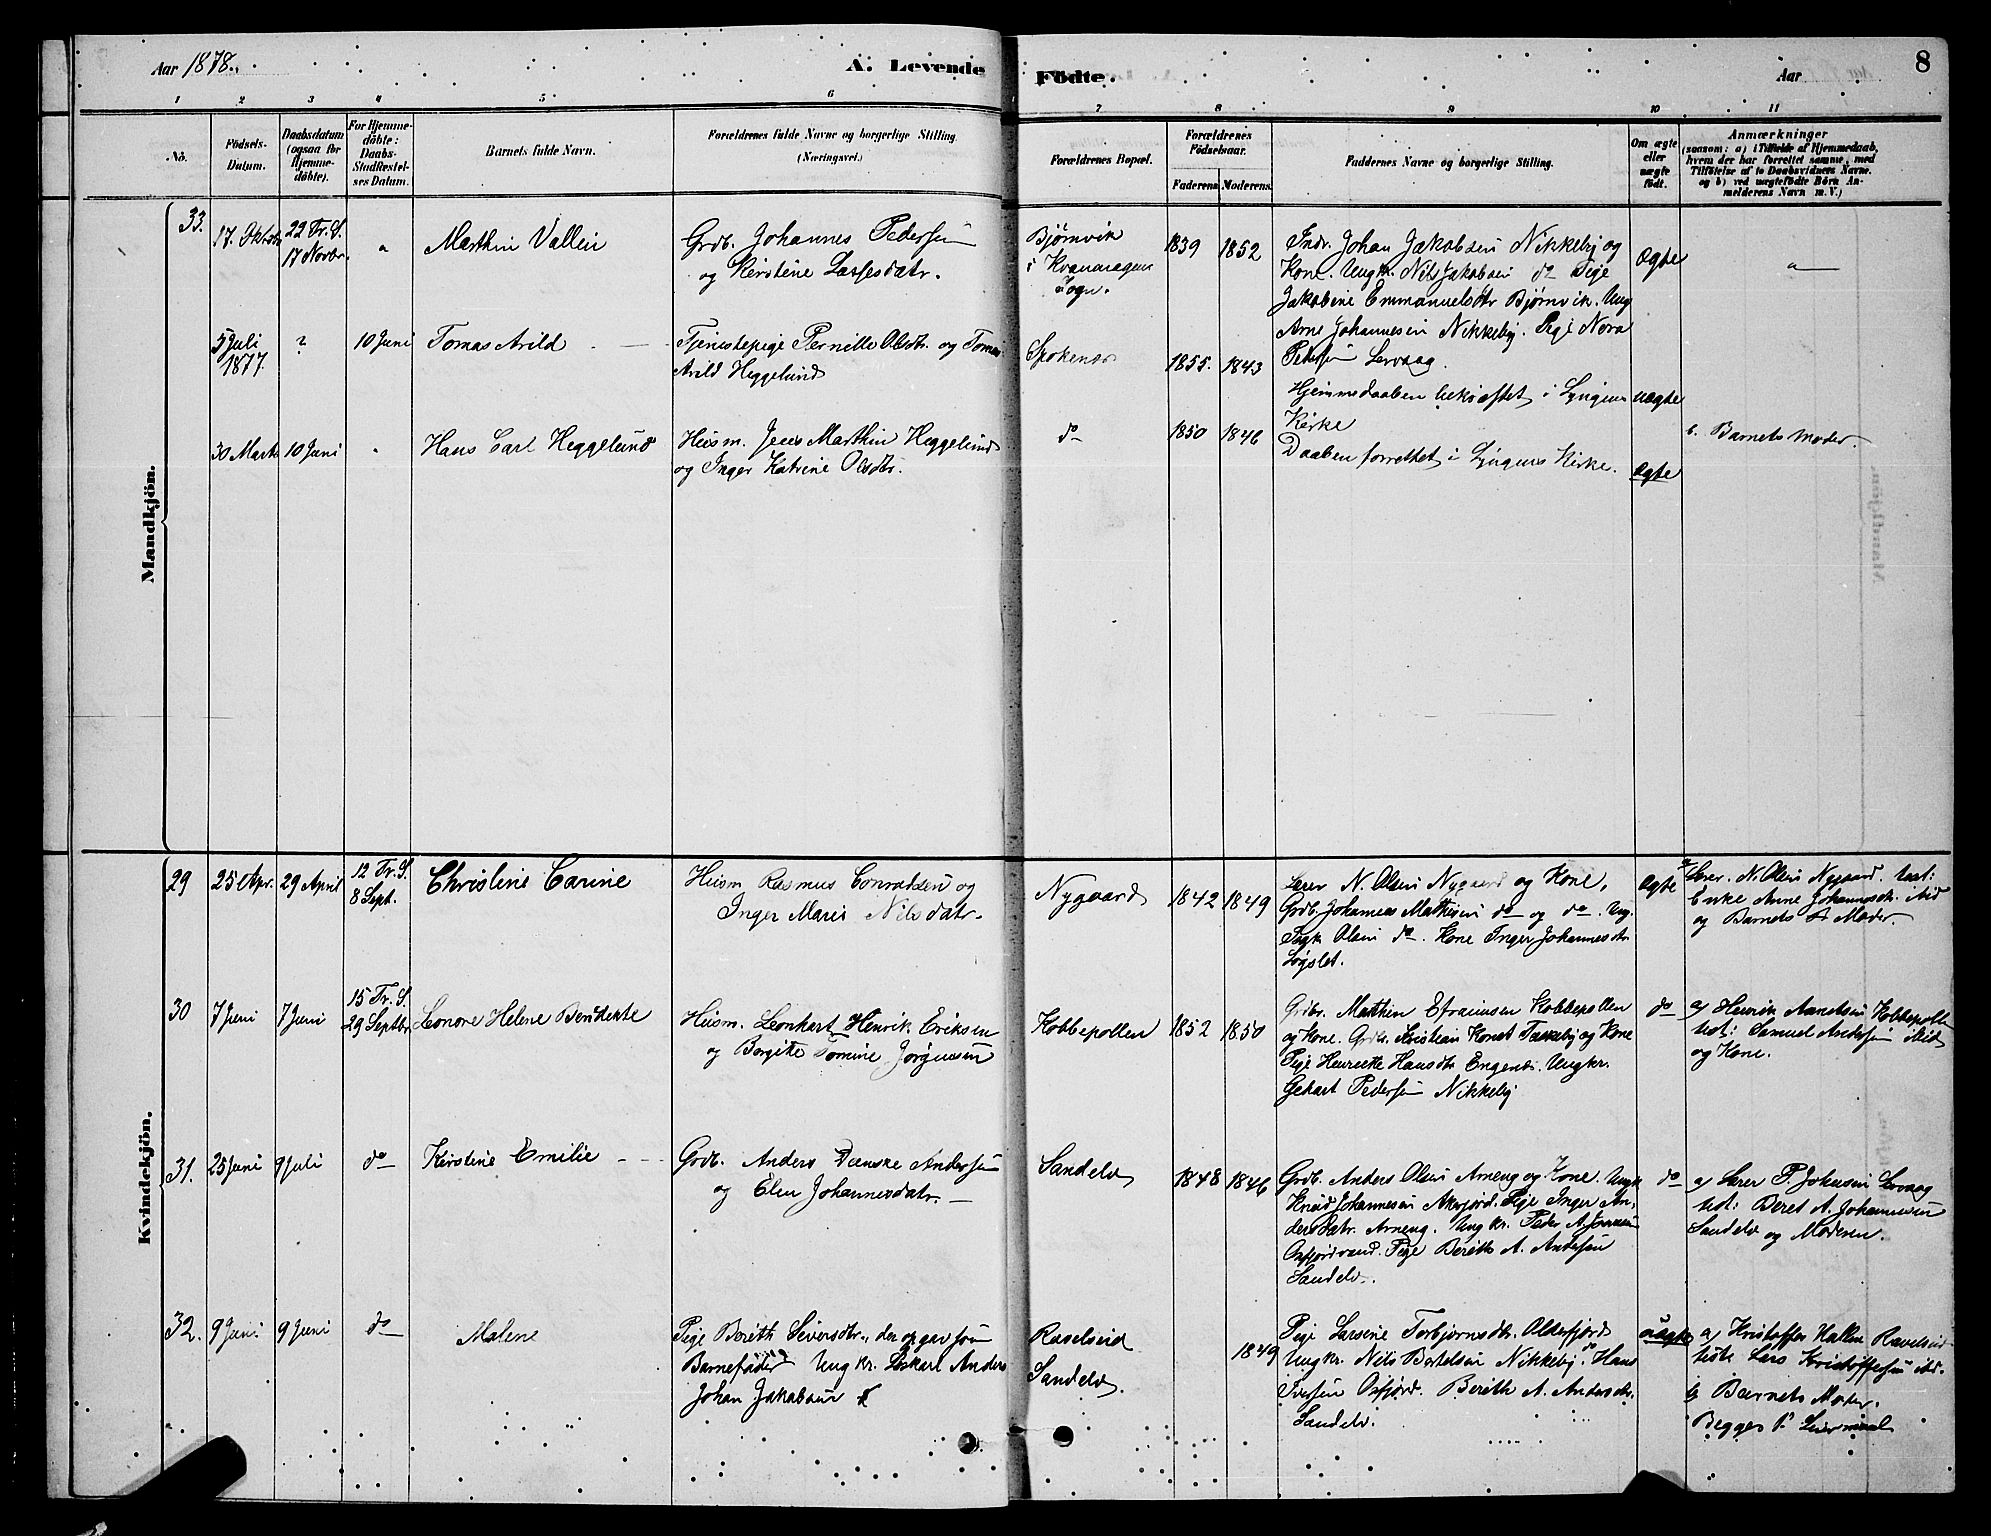 Aar 1878.
A. Levende Fødte.
Aar
8
1 2 3 4 5 6 7 8 9 10 11
No.
Födsels-Datum.
Daabsdatum (ogsaa for Hjemmedöbte).
For Hjemmedöbte: Daabs-Stadfæstelses Datum.
Barnets fulde Navn.
Forældrenes fulde Navne og borgerlige Stilling. (Næringsvei.)
Forældrenes Bopæl.
Forældrenes Födselsaar.
Faderens. Moderens.
Faddernes Navne og borgerlige Stilling.
Om ægte eller uægte födt.
Anmærkninger
(saasom: a) i Tilfælde af Hjemmedaab, hvem der har forrettet samme, med Tilföielse af to Daabsvidners Navne. og b) ved uægtefödte Börn Anmelderens Navn m. V.)
Mandkjön.
33.
17. Oktbr
22 Tr. S.
17 Novbr.
"
Marthin Vallen
Grdb. Johannes Pedersen
og Kirstine Larsesdatr.
Bjørnvik
i Kvænangens
Sogn.
1839
1852
Indr. Johan Jakobsen Nikkeby og
Kone. Ungkr. Nils Jakobsen do Pige
Jakobine Emmanuelsdtr Bjørnvik. Ung
Arne Johannesen Nikkeby. Pige Nora
Petersen Lervaag.
Ægte
"
5 Juli
1877.
?
10 Juni
Tomas Arild
Tjenestepige Pernille Olsdtr. og Tomas
Arild Heggelund
Spokenes
1855.
1843
Hjemmedaaben bekræftet i Lyngens
Kirke
uægte
b. Barnets Moder.
30 Marts
10 Juni
"
Hans Carl Heggelund
Husm. Jens Marthin Heggelund
og Inger Katrine Olsdtr.
do
1850
1846
Daaben forrettet i Lyngens Kirke.
ægte
Kvindekjön.
29
25 Apr.
29 April
12 Tr. S.
8 Sept.
Christine Carine
Husm Rasmus Conradsen og
Inger Marie Nilsdatr.
Nygaard
1842
1849
Lærer N. Olsen Nygaard og Kone,
Grdb. Johannes Mathisen do og do. Ug.
Olsen do. Kone Inger Johannesdtr.
Ægte
a) Lærer. N. Olsen Nygaard. test:
Enke Anne Johannesdtr. ibid
og Barnets Moder.
30
7 Juni
7 Juni
15 Tr. S.
29 Septbr
Leonore Helene Bendekte
Husm. Leonhart Henrik Eriksen
og Borgitte Tomine Jørgensen
Kobbepollen
1852
1850
Grdbr. Mathin Efraimsen Kobbepollen
og Kone. Grdb. Kristian Konst Takkeby og Kone
Pige Henriette Hansdtr Engenes. Ungkr.
Gehart Pedersen Nikkeby
do
a) Henrik Kobbepollen
test: Samuel Andersen ibid
og Kone.
31.
25 Juni
9 Juli
do
Kirstine Emilie
Grdb. Anders Danske Andersen
og Elen Johannesdatr.
Sandelv
1848
1846
Grdb. Anders Olsen Arneng og Kone. Ungk
Knud Johannesen Akerfjord. Pige Inger An-
dersdatr. Arneng. Ung kr. Peder A.
Oxfjordvand. Pige Berith A. Andersen
Sandelv.
do
a) Lærer P. Johnsen Lervaag
test: Beret A. Johannesen
Sandelv og Moderen.
32.
9 Juni
9 Juni
do
Malene
Pige Berith Siversdtr., der opgav som
Barnefader Ung kr. Anders
Johan Jakobsen
Ravelseid
Sandelv.
1849
Pige Larsine Torbjørnsdtr. Olderfjord
Ungkr. Nils Bertelsen Nikkeby. do Hans
Iversen Oxfjord. Berith A. Andersdtr.
Sandelv.
uægte
a) Kristoffer Hallen Ravelseid
test: Lars Kristoffersen ibd.
b) Barnets Moder.
Begges 1ste Leiermaal